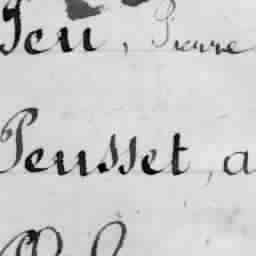 Peu, Pierre
Peusset, a